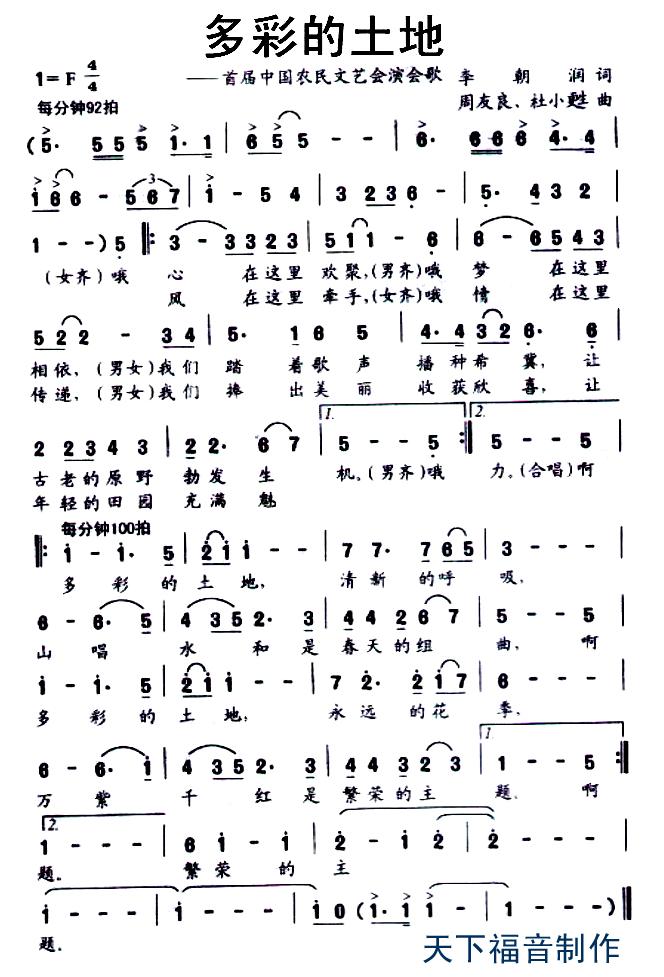 多彩的土地
1=F 4/4
——首届中国农民文艺会演会歌 李朝润词
每分钟92拍
周友良、杜小甦曲
( 5· 5 5 5 1· 1 | 6 5 5 - - | 6· 6 6 6 4· 4 |
1 6 6 - 5 6 7 | 1 - 5 4 | 3 2 3 6 - | 5· 4 3 2 |
1 - - ) 5 |: 3 - 3 3 2 3 | 5 1 1 - 6 | 6 - 6 5 4 3 |
(女齐)哦 心 在这里 欢聚,(男齐)哦 梦 在这里
风 在这里 牵手,(女齐)哦 情 在这里
5 2 2 - 3 4 | 5· 1 6 5 | 4· 4 3 2 6· 6 |
相依,(男女)我们 踏 着歌声 播种希冀,让
传递,(男女)我们 捧 出美丽 收获欣喜,让
1. 2.
2 2 3 4 3 | 2 2· 6 7 | 5 - - 5 :| 5 - - 5 |
古老的原野 勃发生 机。(男齐)哦 力。(合唱)啊
年轻的田园 充满魅
每分钟100拍
|: 1 - 1· 5 | 2 1 1 - - | 7 7· 7 6 5 | 3 - - - |
多彩的土地, 清新的呼 吸,
6 - 6· 5 | 4 3 5 2· 3 | 4 4 2 6 7 | 5 - - 5 |
山唱 水和是春天的组 曲, 啊
1 - 1· 5 | 2 1 1 - - | 7 2· 2 1 7 | 6 - - - |
多彩的土地, 永远的花 季,
1.
6 - 6· 1 | 4 3 5 2· 3 | 4 4 3 2 2 3 | 1 - - 5 :|
万紫 千红是繁荣的主 题, 啊
2.
1 - - - | 6 1 - 1 | 2 - 1 1 | 2 - - - |
题。 繁荣的主
1 - - - | 1 - - - | 1 0 ( 1· 1 | 1 - - - ) ||
题。
天下福音制作